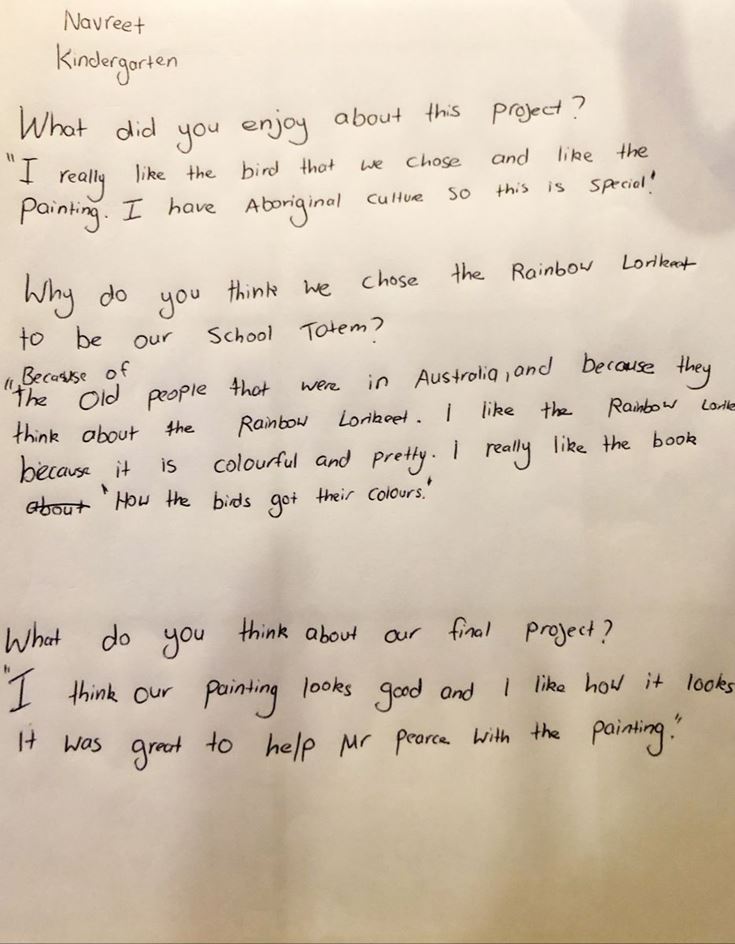 Navreet
Kindergarten
What did you enjoy about this project?
"I really like the bird that we chose and like the
painting. I have Aboriginal culture so this is special!
Why do you think we chose the Rainbow Lorikeet
to be our School Totem?
"Because of
The Old people that were in Australia, and because they
think about the Rainbow Lorikeet. I like the Rainbow Lorike
because it is colourful and pretty. I really like the book
about 'How the birds got their colours.'
What do you think about our final project?
"I think our painting looks good and I like how it looks
It was great to help Mr Pearce with the painting."